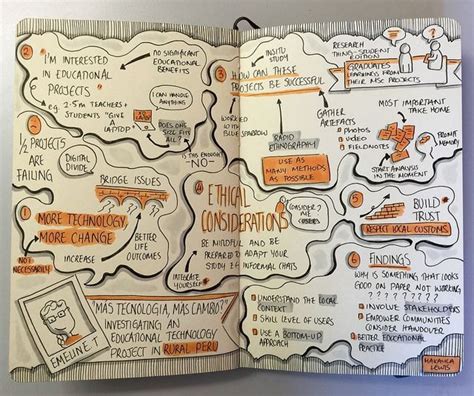 2
I'M INTERESTED
IN EDUCATIONAL
PROJECTS
eg. 2.5m TEACHERS +
STUDENTS "GIVE A
LAPTOP"
NO SIGNIFICANT
EDUCATIONAL
BENEFITS
I CAN HANDLE
ANYTHING
DOES ONE
SIZE FITS
ALL?
IS THIS ENOUGH?
-NO-
1/2 PROJECTS
ARE
FAILING
DIGITAL
DIVIDE
BRIDGE ISSUES
1
MORE TECHNOLOGY
MORE CHANGE
NOT
NECESSARILY
INCREASE
BETTER
LIFE
OUTCOMES
MAS TECNOLOGIA, MAS CAMBO?
INVESTIGATING AN
EDUCATIONAL TECHNOLOGY
PROJECT IN RURAL PERU
EMELINE.T
3
HOW CAN THESE
PROJECTS BE SUCCESSFUL
INSITU
STUDY
WORKED
WITH
RAPID
ETHNOGRAPHY
USE AS
MANY METHODS
AS POSSIBLE
GATHER
ARTEFACTS
PHOTOS
VIDEO
FIELDNOTES
RESEARCH
THING-STUDENT
EDITION
GRADUATES
LEARNINGS FROM
THEIR MSc PROJECTS
MOST IMPORTANT
TAKE HOME
PROMPT
MEMORY
START ANALYSIS
IN THE MOMENT
4
ETHICAL
CONSIDERATIONS
BE MINDFUL AND BE
PREPARED TO ADAPT YOUR
STUDY eg INFORMAL CHATS
INTEGRATE
YOURSELF
5
BUILD
TRUST
RESPECT LOCAL CUSTOMS
UNDERSTAND THE LOCAL
CONTEXT
SKILL LEVEL OF USERS
USE A BOTTOM-UP
APPROACH
6 FINDINGS
WHY IS SOMETHING THAT LOOKS
GOOD ON PAPER NOT WORKING
? ? ? ? ? ? ?
INVOLVE STAKEHOLDERS
EMPOWER COMMUNITIES
CONSIDER HANDOVER
BETTER EDUCATIONAL
PRACTICE
MAKAYLA
LEWIS